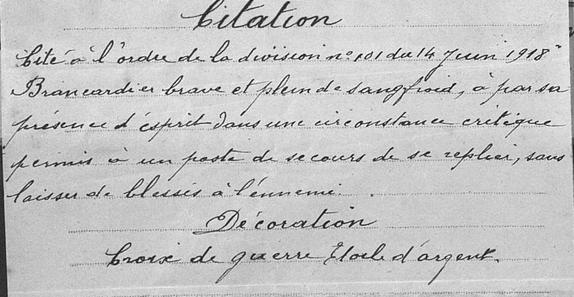 Citation
Cité à l'ordre de la division n° 101 du 14 Juin 1918"
Brancardier brave et plein de sangfroid, à par sa
présence d'ésprit dans une circonstance critique
permis à un poste de secours de se replier, sans
laisser de blessés à l'énnemi.
Décoration
Croix de guerre Etoile d'argent.